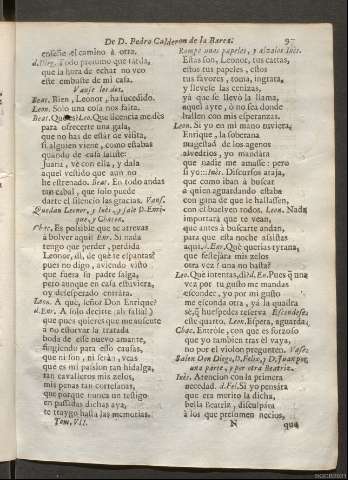 De D. Pedro Calderon de la Barca. 97
enseñe el camino à otra.
d.Dieg. Todo presumo que tarda,
que la hora de echar no veo
este embuste de mi casa.
Vanse los dos.
Beat. Bien, Leonor, ha sucedido.
Leon. Solo una cosa nos falta.
Beat. Què es? Leo. Que licencia me dès
para ofrecerte una gala,
que no has de estàr de visita,
si alguien viene, como estabas
quando de casa saliste:
Juana, vè con ella, y dala
aquel vestido que aun no
he estrenado. Beat. En todo andas
tan cabal, que solo puede
darte el silencio las gracias. Vans.
Quedan Leonor, y Inès, y sale D. Enri-
que, y Chacon.
Chac. Es possible que se atrevas
à bolver aqui? Enr. Si nada
tengo que perder, perdida
Leonor, di, de què te espantas?
pues no digo, aviendo visto
que fuera su padre salga,
pero aunque en casa estuviera,
oy desesperado entràra.
Leon. A què, señor Don Enrique?
d.Enr. A solo decirte (ah falsa!)
que pues quieres que me ausente
à no estorvar la tratada
boda de esse nuevo amante,
fingiendo para esso causas,
que ni son, ni seràn, veas
que es mi passion tan hidalga,
tan cavalleros mis zelos,
mis penas tan cortesanas,
que porque nunca un testigo
en passadas dichas aya,
te traygo hasta las memorias.
Tom. VII.
Rompe unos papeles, y alzalos Inès.
Estas son, Leonor, tus cartas,
estos tus papeles, estos
tus favores, toma, ingrata,
y llevese las cenizas,
ya que se llevò la llama,
aquel ayre, ò no sea donde
hallen con mis esperanzas.
Leon. Si yo en mi mano tuviera,
Enrique, la soberana
magestad de los agenos
alvedrios, yo mandàra
que nadie me amasse: pero
si yo::: Inès. Discursos ataja,
que como iban à buscar
à quien aguardando estaba
con gana de que le hallassen,
con èl buelven todos. Leon. Nada
importarà que te vean,
que antes à buscarte andan,
para que esta noche assistas
aqui. d.Enr. Què querias tyrana,
que festejàra mis zelos
otra vez? una no basta?
Leo. Què intentas, di? d.En. Pues què una
vez por tu gusto me mandas
esconder, yo por mi gusto
me esconda otra, yà la quadra
sè, que huespedes reserva Escondese.
este quarto. Leon. Espera, aguarda.
Chac. Entròse, con que es forzoso
que yo tambien tras èl vaya,
no por el violon pregunten. Vase.
Salen Don Diego, D. Felix, y D. Juan por
una parte, y por otra Beatriz.
Inès. Atencion con la primera
necedad. d.Fel. Si yo pensàra
que era merito la dicha,
bella Beatriz, disculpàra
à los que presumen necios,
N que